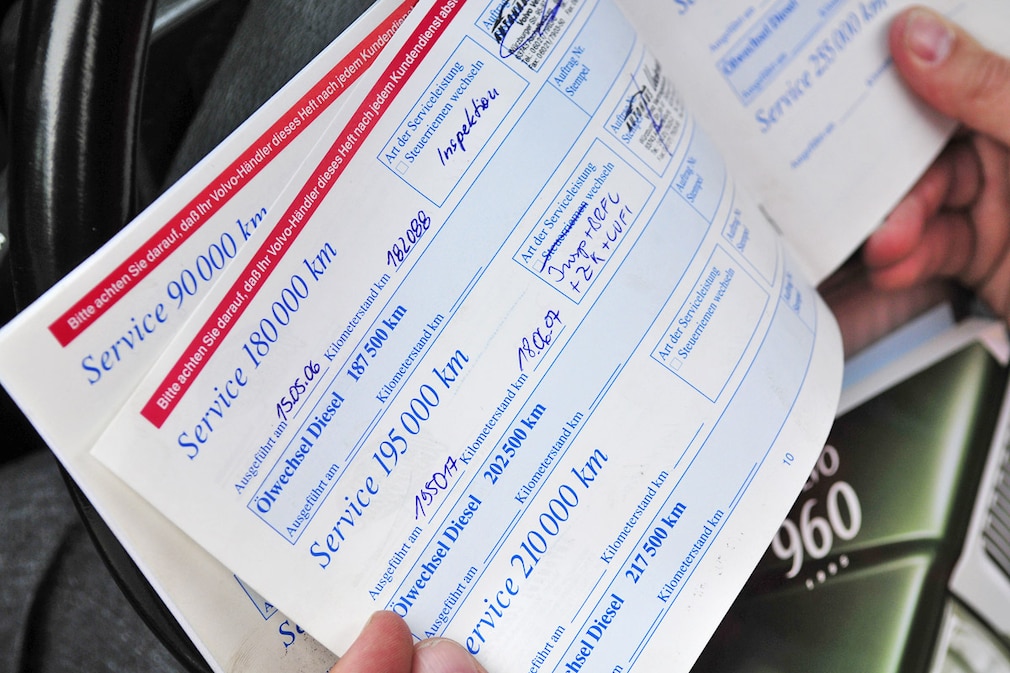 Bitte achten Sie darauf, daß Ihr Volvo-Händler dieses Heft nach jedem Kundendienst
Service 90 000 km
Bitte achten Sie darauf, daß Ihr Volvo-Händler dieses Heft nach jedem Kundendienst
Service 180 000 km
Ausgeführt am 15.05.06 Kilometerstand km 182088
Art der Serviceleistung
Steuerriemen wechseln
Inspektion
Ölwechsel Diesel 187 500 km
Ausgeführt am Kilometerstand km
Auftrag Nr.
Stempel
Service 195 000 km
Ausgeführt am 195017 Kilometerstand km 18.06.07
Art der Serviceleistung
Steuerriemen wechseln
Insp + BRFL
+ ZK + LUFI
Ölwechsel Diesel 202 500 km
Ausgeführt am Kilometerstand km
Auftrag Nr.
Stempel
Service 210 000 km
Kilometerstand km
Art der Serviceleistung
Steuerriemen wechseln
Auftrag Nr.
Stempel
Diesel 217 500 km
Kilometerstand km
10
Ölwechsel Diesel
Service 255 000 km
Ausgeführt am
960